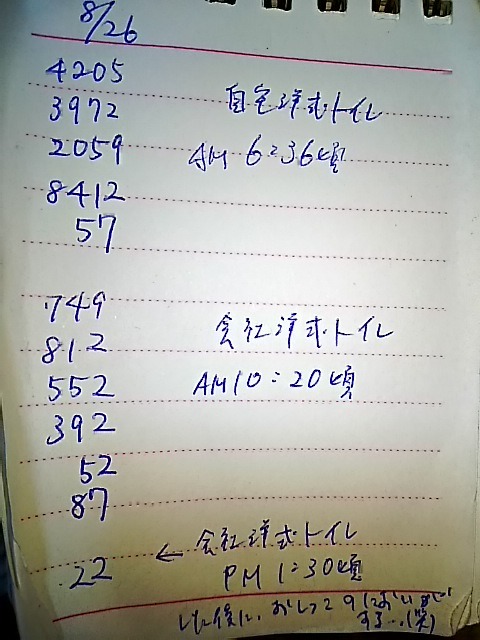 8/26
4205
3972
自宅洋式トイレ
2059
AM 6:36頃
8412
57
749
812
会社洋式トイレ
552
AM10:20頃
392
52
87
← 会社洋式トイレ
22
PM 1:30頃
した後に、おしっこのにおいが
する…(笑)